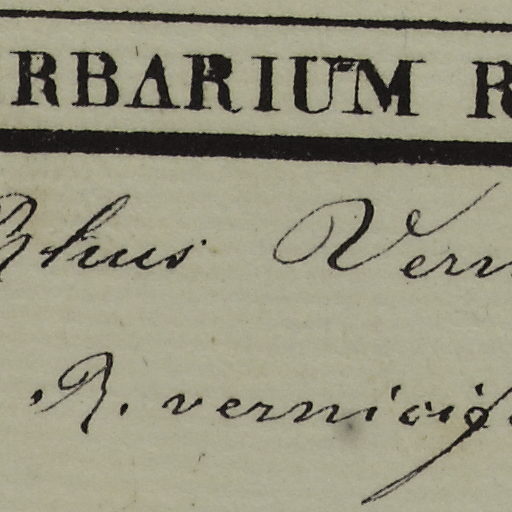 RBARIUM R
Rhus Vern
R. vernicif